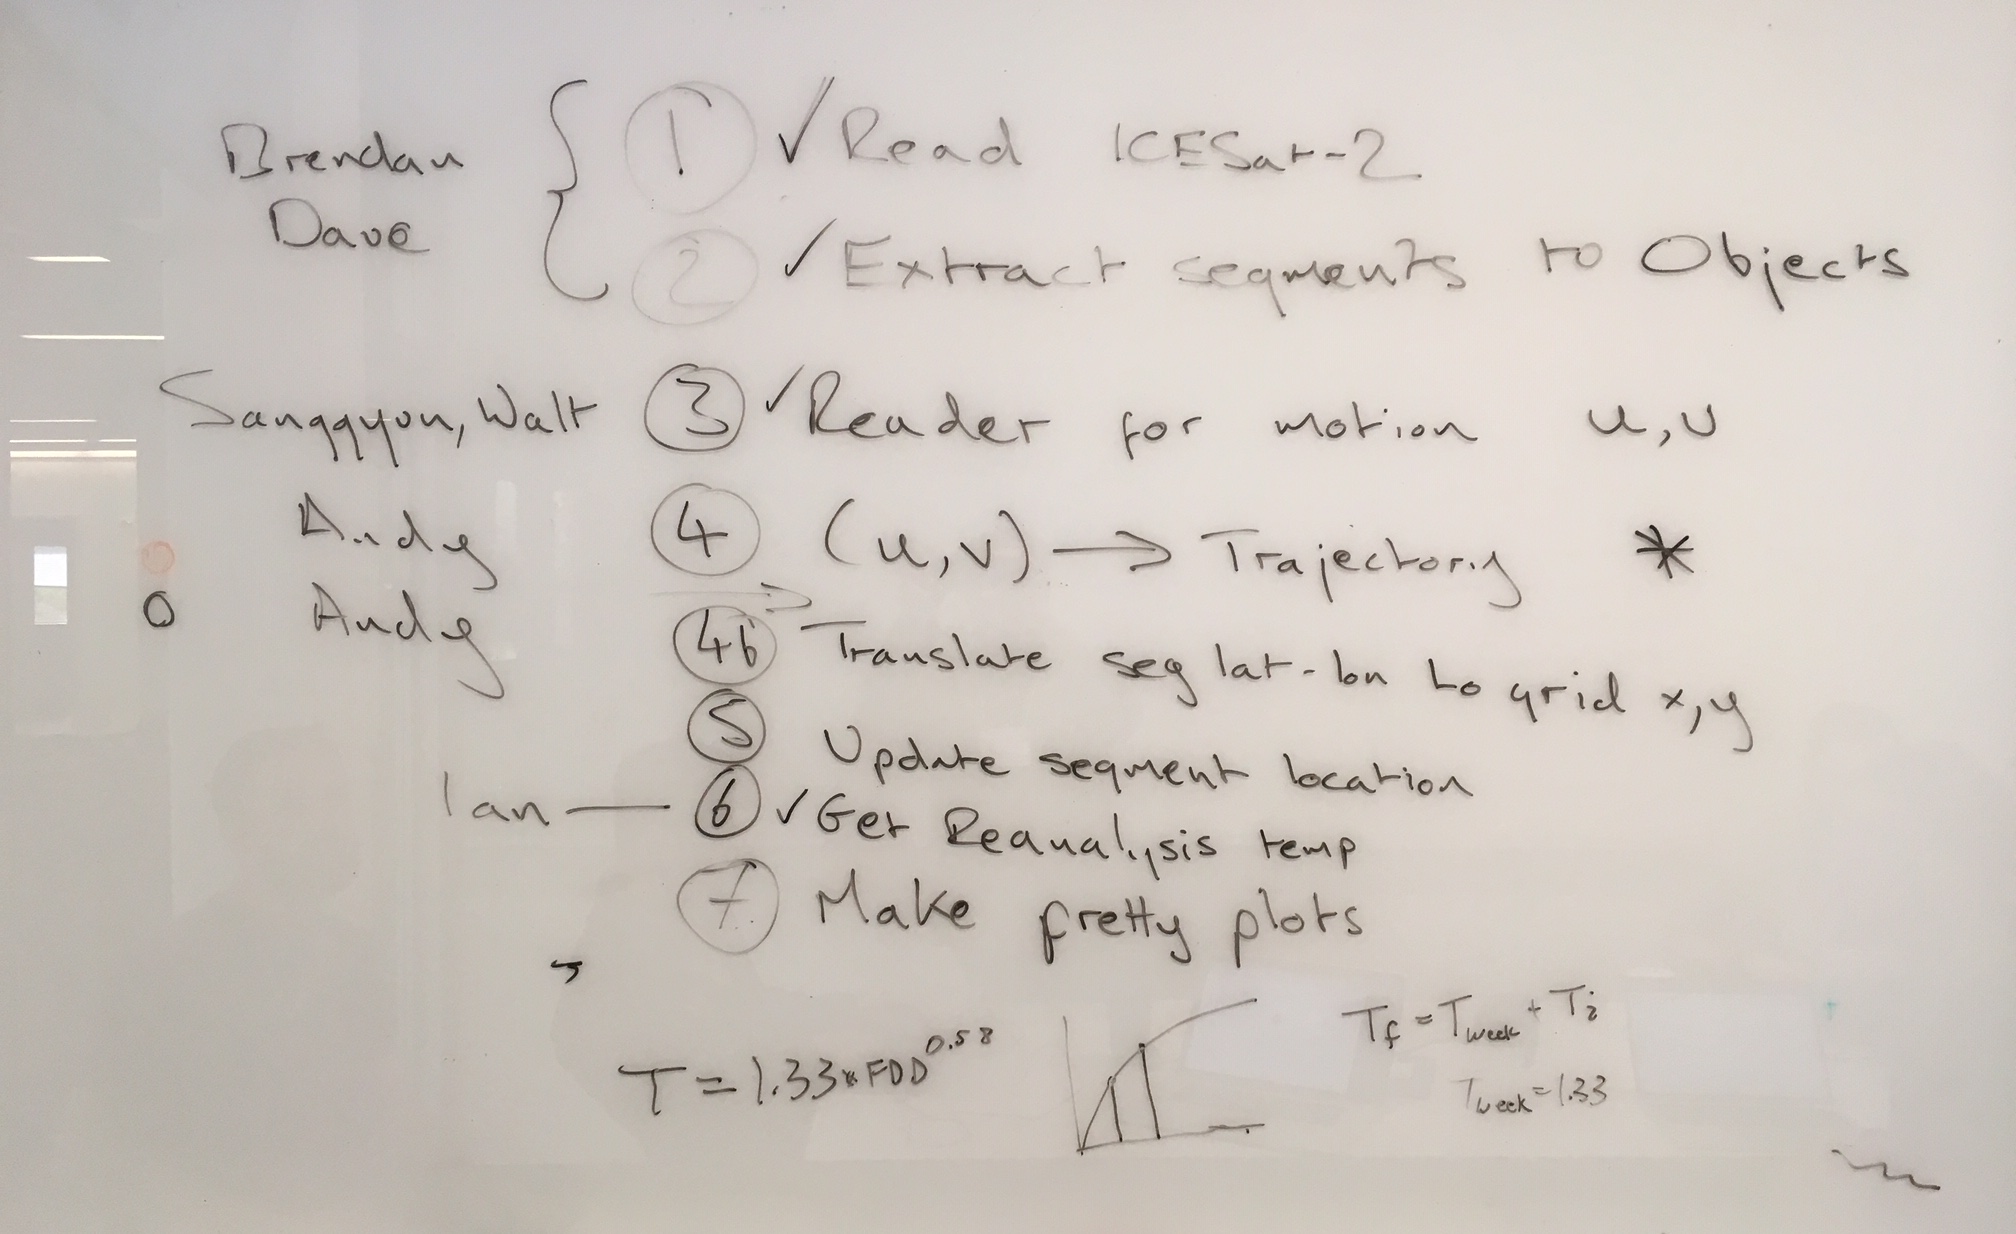 Brendan ① ✓ Read ICESat-2
Dave ② ✓ Extract segments to Objects
Sanggyun, Walt ③ ✓ Reader for motion u,v
Andy ④ (u,v) → Trajectory *
Andy 4b Translate seg lat-lon to grid x,y
⑤ Update segment location
Ian — ⑥ ✓ Get Reanalysis temp
⑦ Make pretty plots
T = 1.33 * FDD^0.58
Tf = Tweek + Ti
Tweek = 1.33